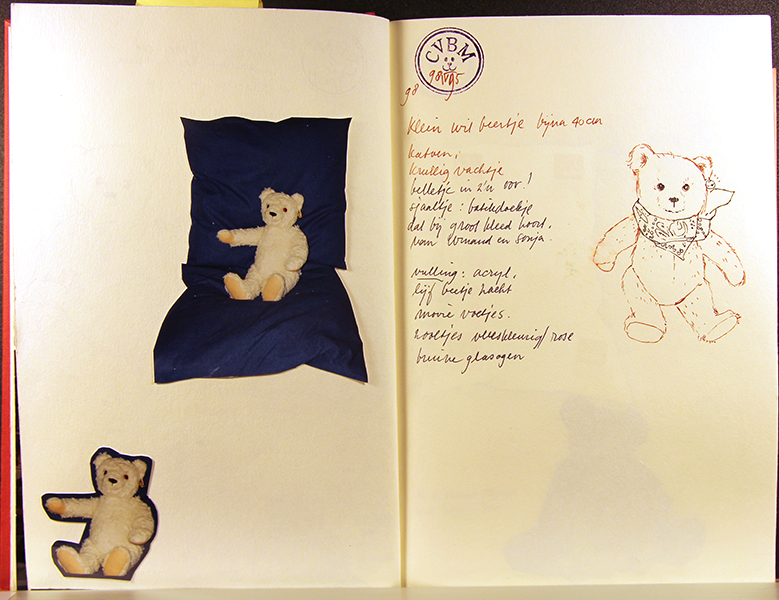 CVBM
98 V 95
98
klein wit beertje bijna 40 cm
katoen,
krullig vachtje
belletje in z'n oor!
sjaaltje: batikdoekje
dat bij groot kleed hoort.
van Wînand en Sonja.
vulling: acryl,
lijf beetje zacht
mooie voetjes.
zooltjes vleeskleurig/rose
bruine glasogen